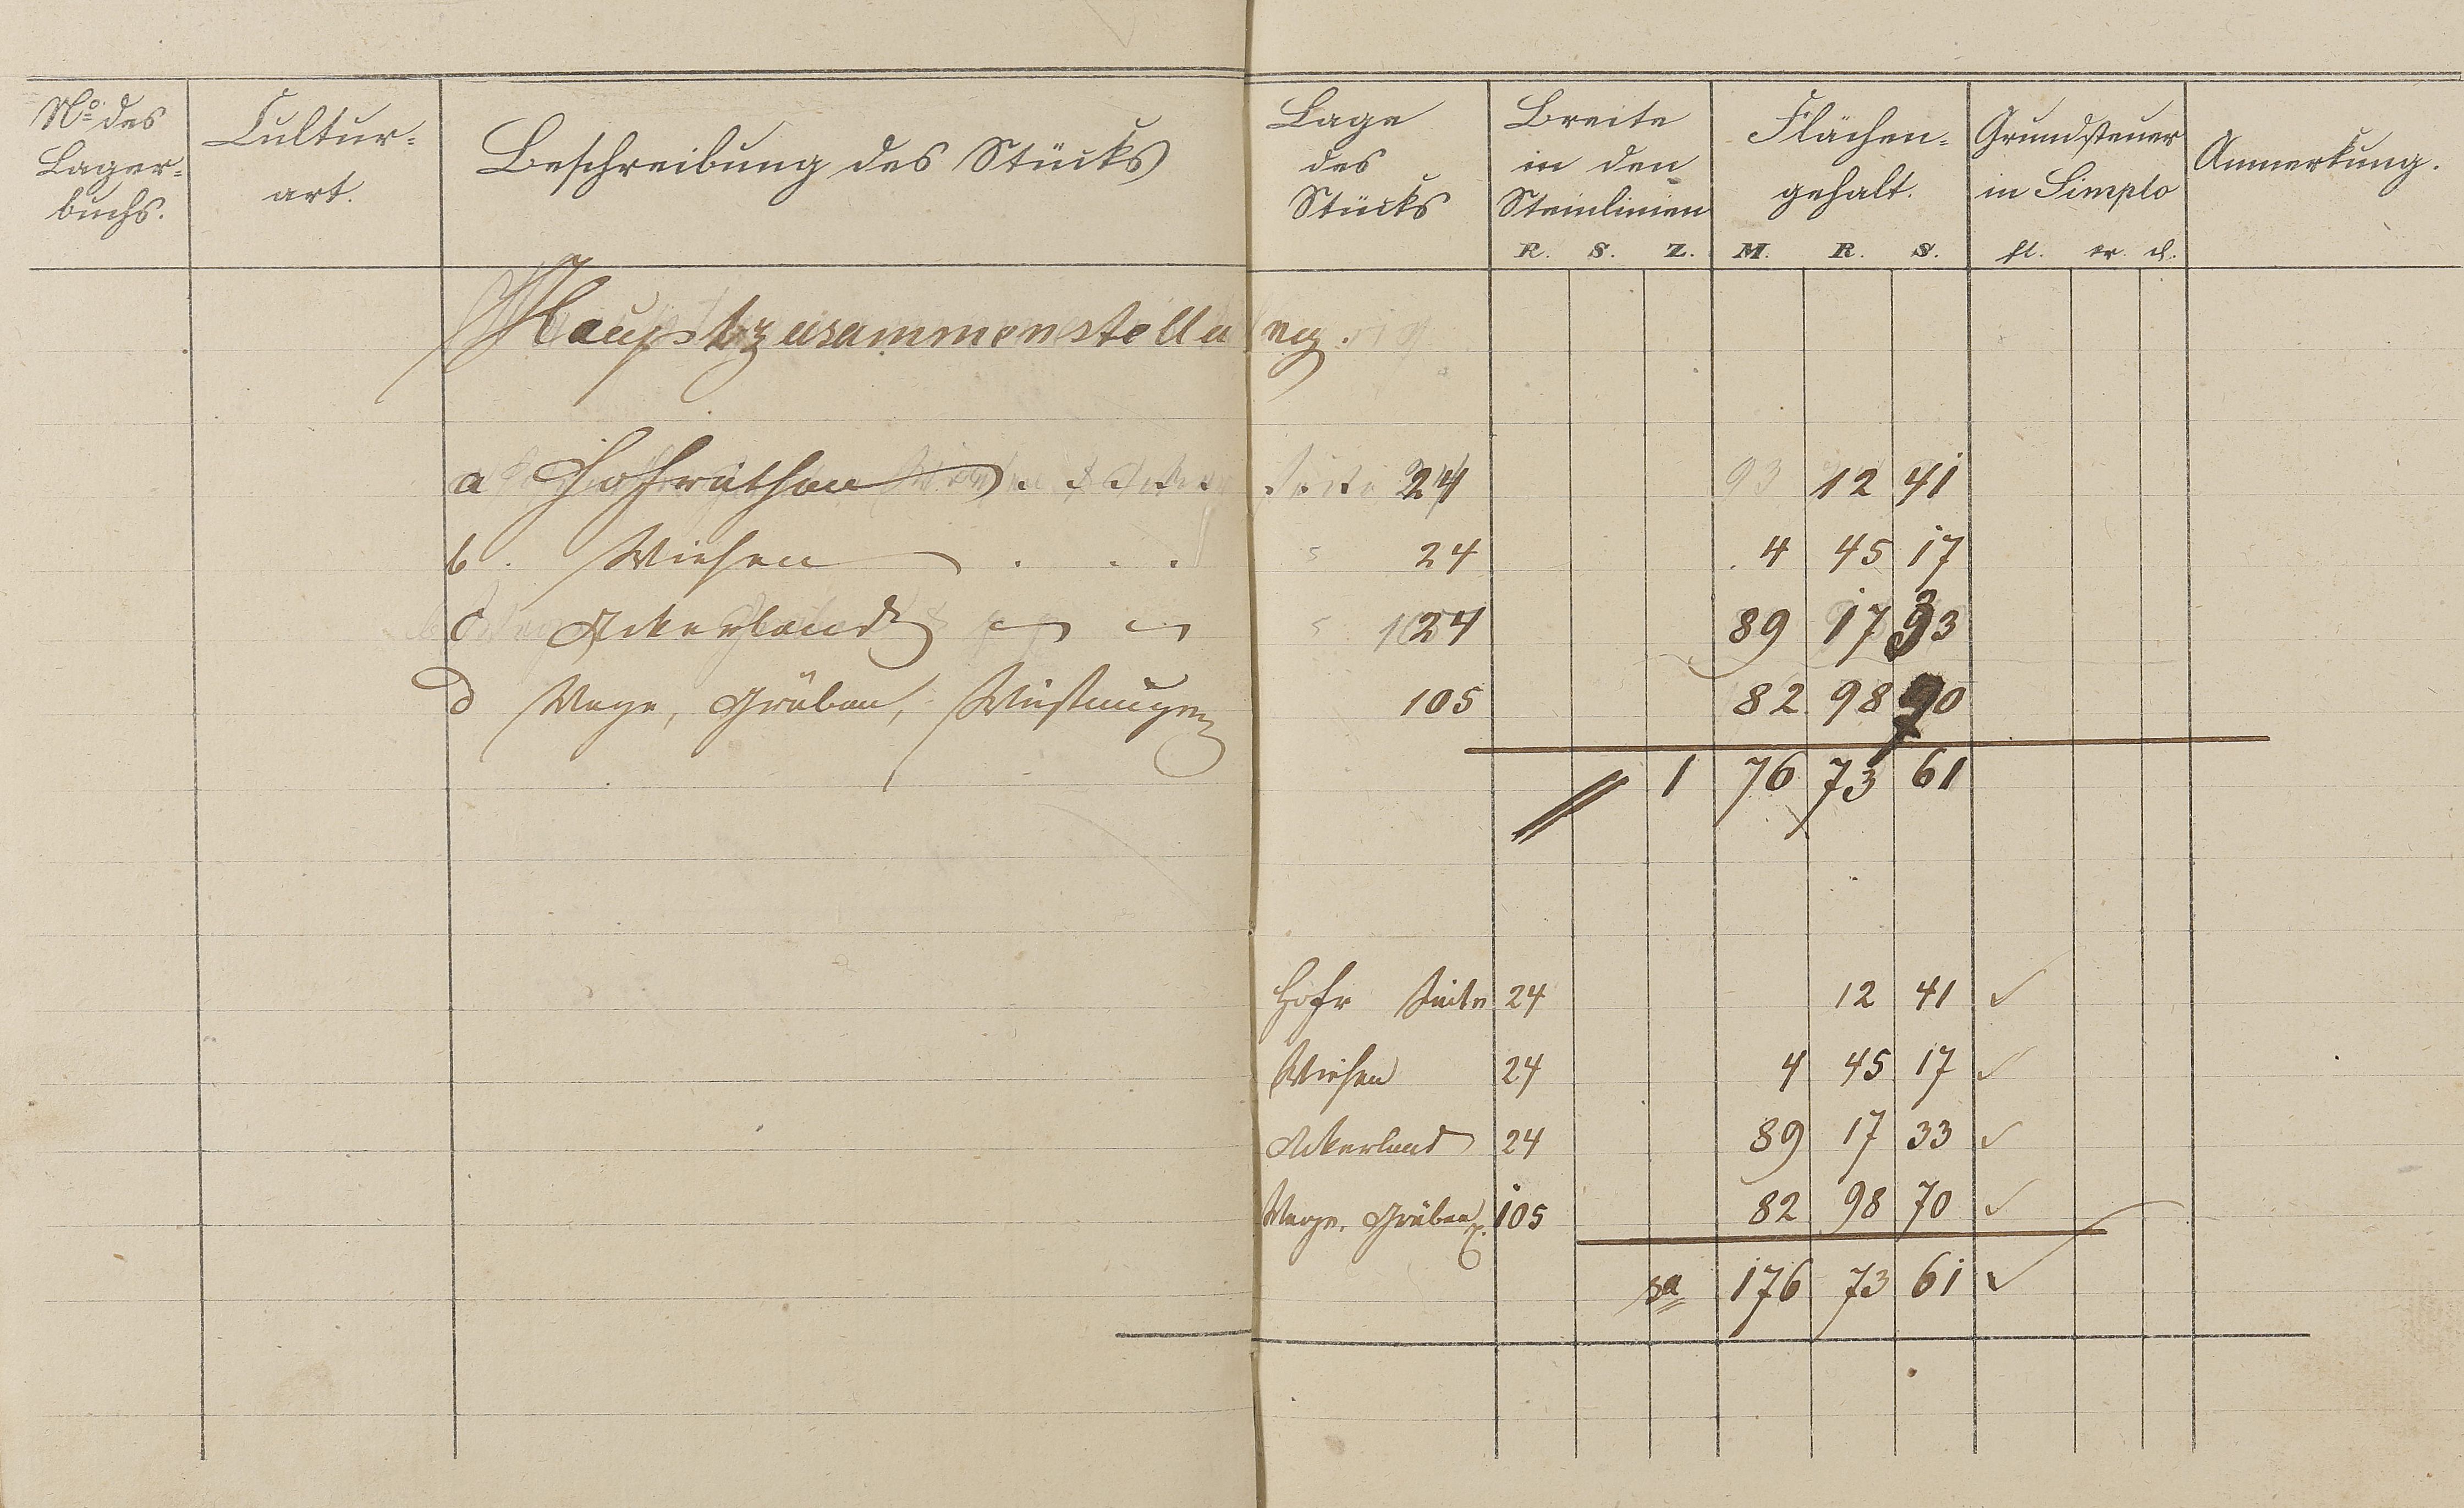 No. des Lager-buchs.
Cultur-art.
Beschreibung des Stücks
Lage des Stücks
Breite in den Steinlinien
R. S. Z.
Flächen-gehalt.
M. R. S.
Grundsteuer in Simplo
fl. xr. d.
Anmerkung.
Hauptzusammenstellung.
a Hofraithen . . . . . Seite 24 12 41
b. Wiesen . . . " 24 4 45 17
c Ackerland " 24 89 17 33
d Wege, Gräben, Wüstungen 105 82 98 70
1 76 73 61
Hofr Seite 24 12 41 ✓
Wiesen 24 4 45 17 ✓
Ackerland 24 89 17 33 ✓
Wege, Gräben 105 82 98 70 ✓
sa 176 73 61 ✓